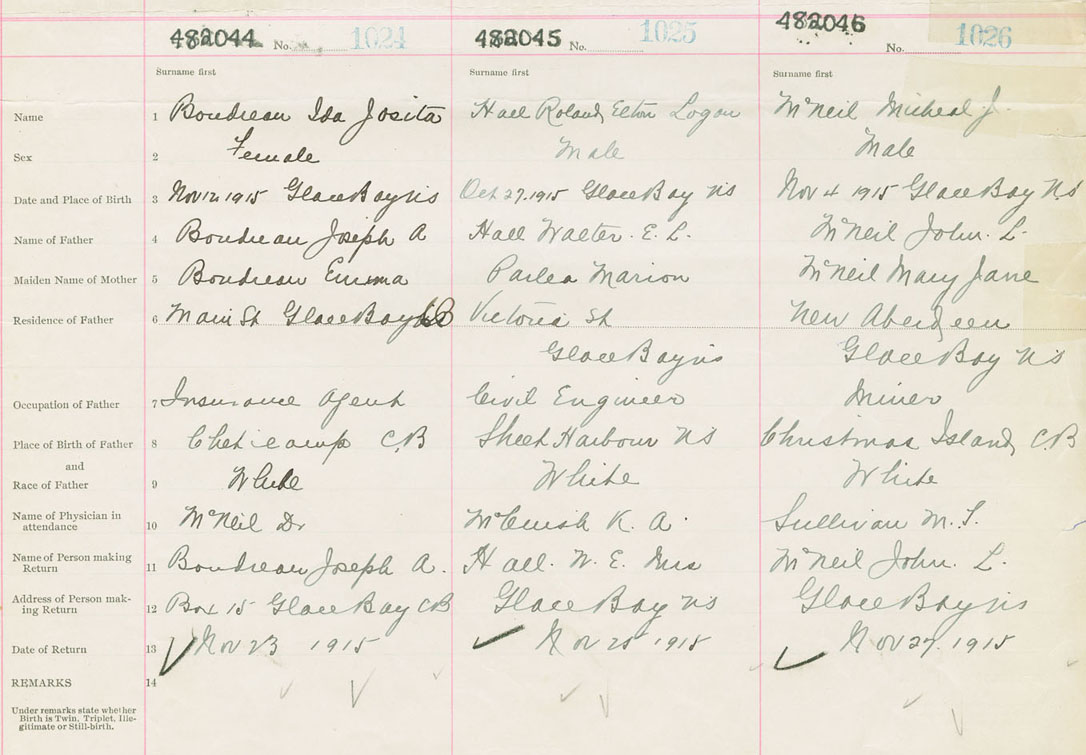 482044 No. 1024 482045 No. 1025 482046 No. 1026
Surname first Surname first Surname first
Name 1 Boudreau Ida Josita Hall Roland Elton Logan McNeil Micheal J.
Sex 2 Female Male Male
Date and Place of Birth 3 Nov 12 1915 Glace Bay NS Oct 27. 1915 Glace Bay NS Nov 4 1915 Glace Bay NS
Name of Father 4 Boudreau Joseph A Hall Walter. E. L. McNeil John. L.
Maiden Name of Mother 5 Boudreau Emma Marion McNeil Mary Jane
Residence of Father 6 Main St Glace Bay CB Victoria St New Aberdeen
Glace Bay NS Glace Bay NS
Occupation of Father 7 Insurance Agent Civil Engineer Miner
Place of Birth of Father 8 Cheticamp C.B Sheet Harbour NS Christmas Island, C.B
and
Race of Father 9 White White White
Name of Physician in
attendance 10 McNeil Dr K. A. Sullivan M. T.
Name of Person making
Return 11 Boudreau Joseph A. Hall. W. E. Mrs McNeil John. L.
Address of Person mak-
ing Return 12 Box 15 Glace Bay CB Glace Bay NS Glace Bay NS
Date of Return 13 Nov 23 1915 Nov 25 1915 Nov 27. 1915
REMARKS 14
Under remarks state whether
Birth is Twin, Triplet, Ille-
gitimate or Still-birth.